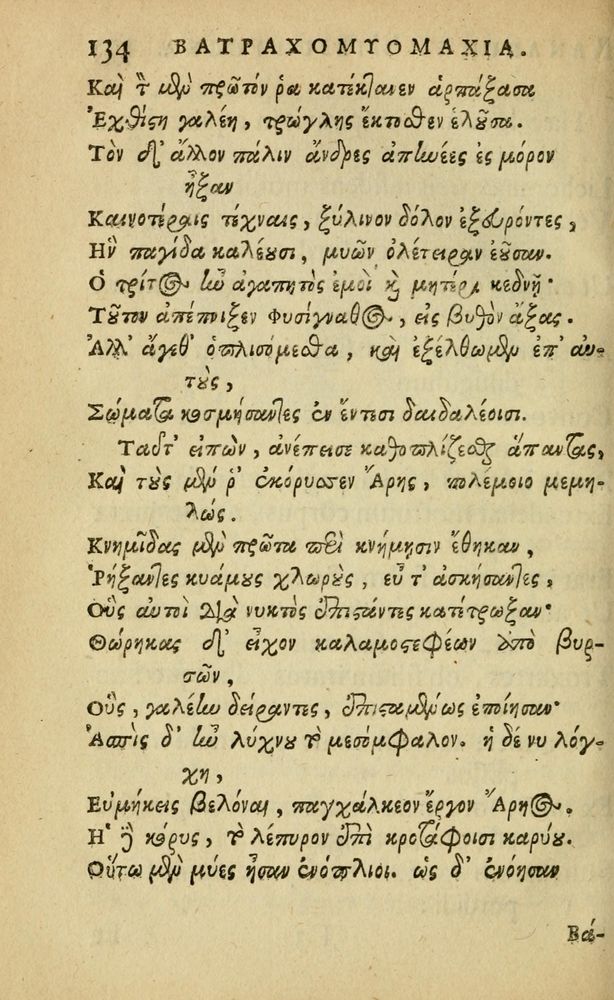 134 ΒΑΤΡΑΧΟΜΥΟΜΑΧΙΑ.
Καὶ τὸν μὲν πρῶτόν ῥα κατέκτανεν ἁρπάξασα
Ἐχθίστη γαλέη, τρώγλης ἔκτοθεν ἑλοῦσα.
Τὸν δ' ἄλλον πάλιν ἄνδρες ἀπηνέες ἐς μόρον
ἦξαν
Καινοτέραις τέχναις, ξύλινον δόλον ἐξευρόντες,
Ην παγίδα καλέουσι, μυῶν ὀλέτειραν ἐοῦσαν.
Ο τρίτος ἦν ἀγαπητὸς ἐμοὶ καὶ μητέρι κεδνῇ·
Τοῦτον ἀπέπνιξεν Φυσίγναθος, εἰς βυθὸν ἄξας.
Ἀλλ' ἄγεθ' ὁπλισόμεσθα, καὶ ἐξέλθωμεν ἐπ' αὐ-
τοὺς,
Σώματα κοσμήσαντες ἐν ἔντεσι δαιδαλέοισι.
Ταῦτ' εἰπὼν, ἀνέπεισε καθοπλίζεσθαι ἅπαντας,
Καὶ τοὺς μέν ῥ' ἐκόρυσσεν Ἄρης, πολέμοιο μεμη-
λώς.
Κνημῖδας μὲν πρῶτα περὶ κνήμησιν ἔθηκαν,
Ῥήξαντες κυάμους χλωροὺς, εὖ τ' ἀσκήσαντες,
Οὓς αὐτοὶ διὰ νυκτὸς ἐπιστάντες κατέτρωξαν·
Θώρηκας δ' εἶχον καλαμοστεφέων ἀπὸ βυρ-
σῶν,
Οὓς, γαλέην δείραντες, ἐπισταμένως ἐποίησαν·
Ἀσπὶς δ' ἦν λύχνου τὸ μεσόμφαλον. ἡ δέ νυ λόγ-
χη,
Εὐμήκεις βελόναι, παγχάλκεον ἔργον Ἄρηος.
Η' δὲ κόρυς, τὸ λέπυρον ἐπὶ κροτάφοισι καρύου.
Οὕτω μὲν μύες ἦσαν ἐνόπλιοι. ὡς δ' ἐνόησαν
Βά-